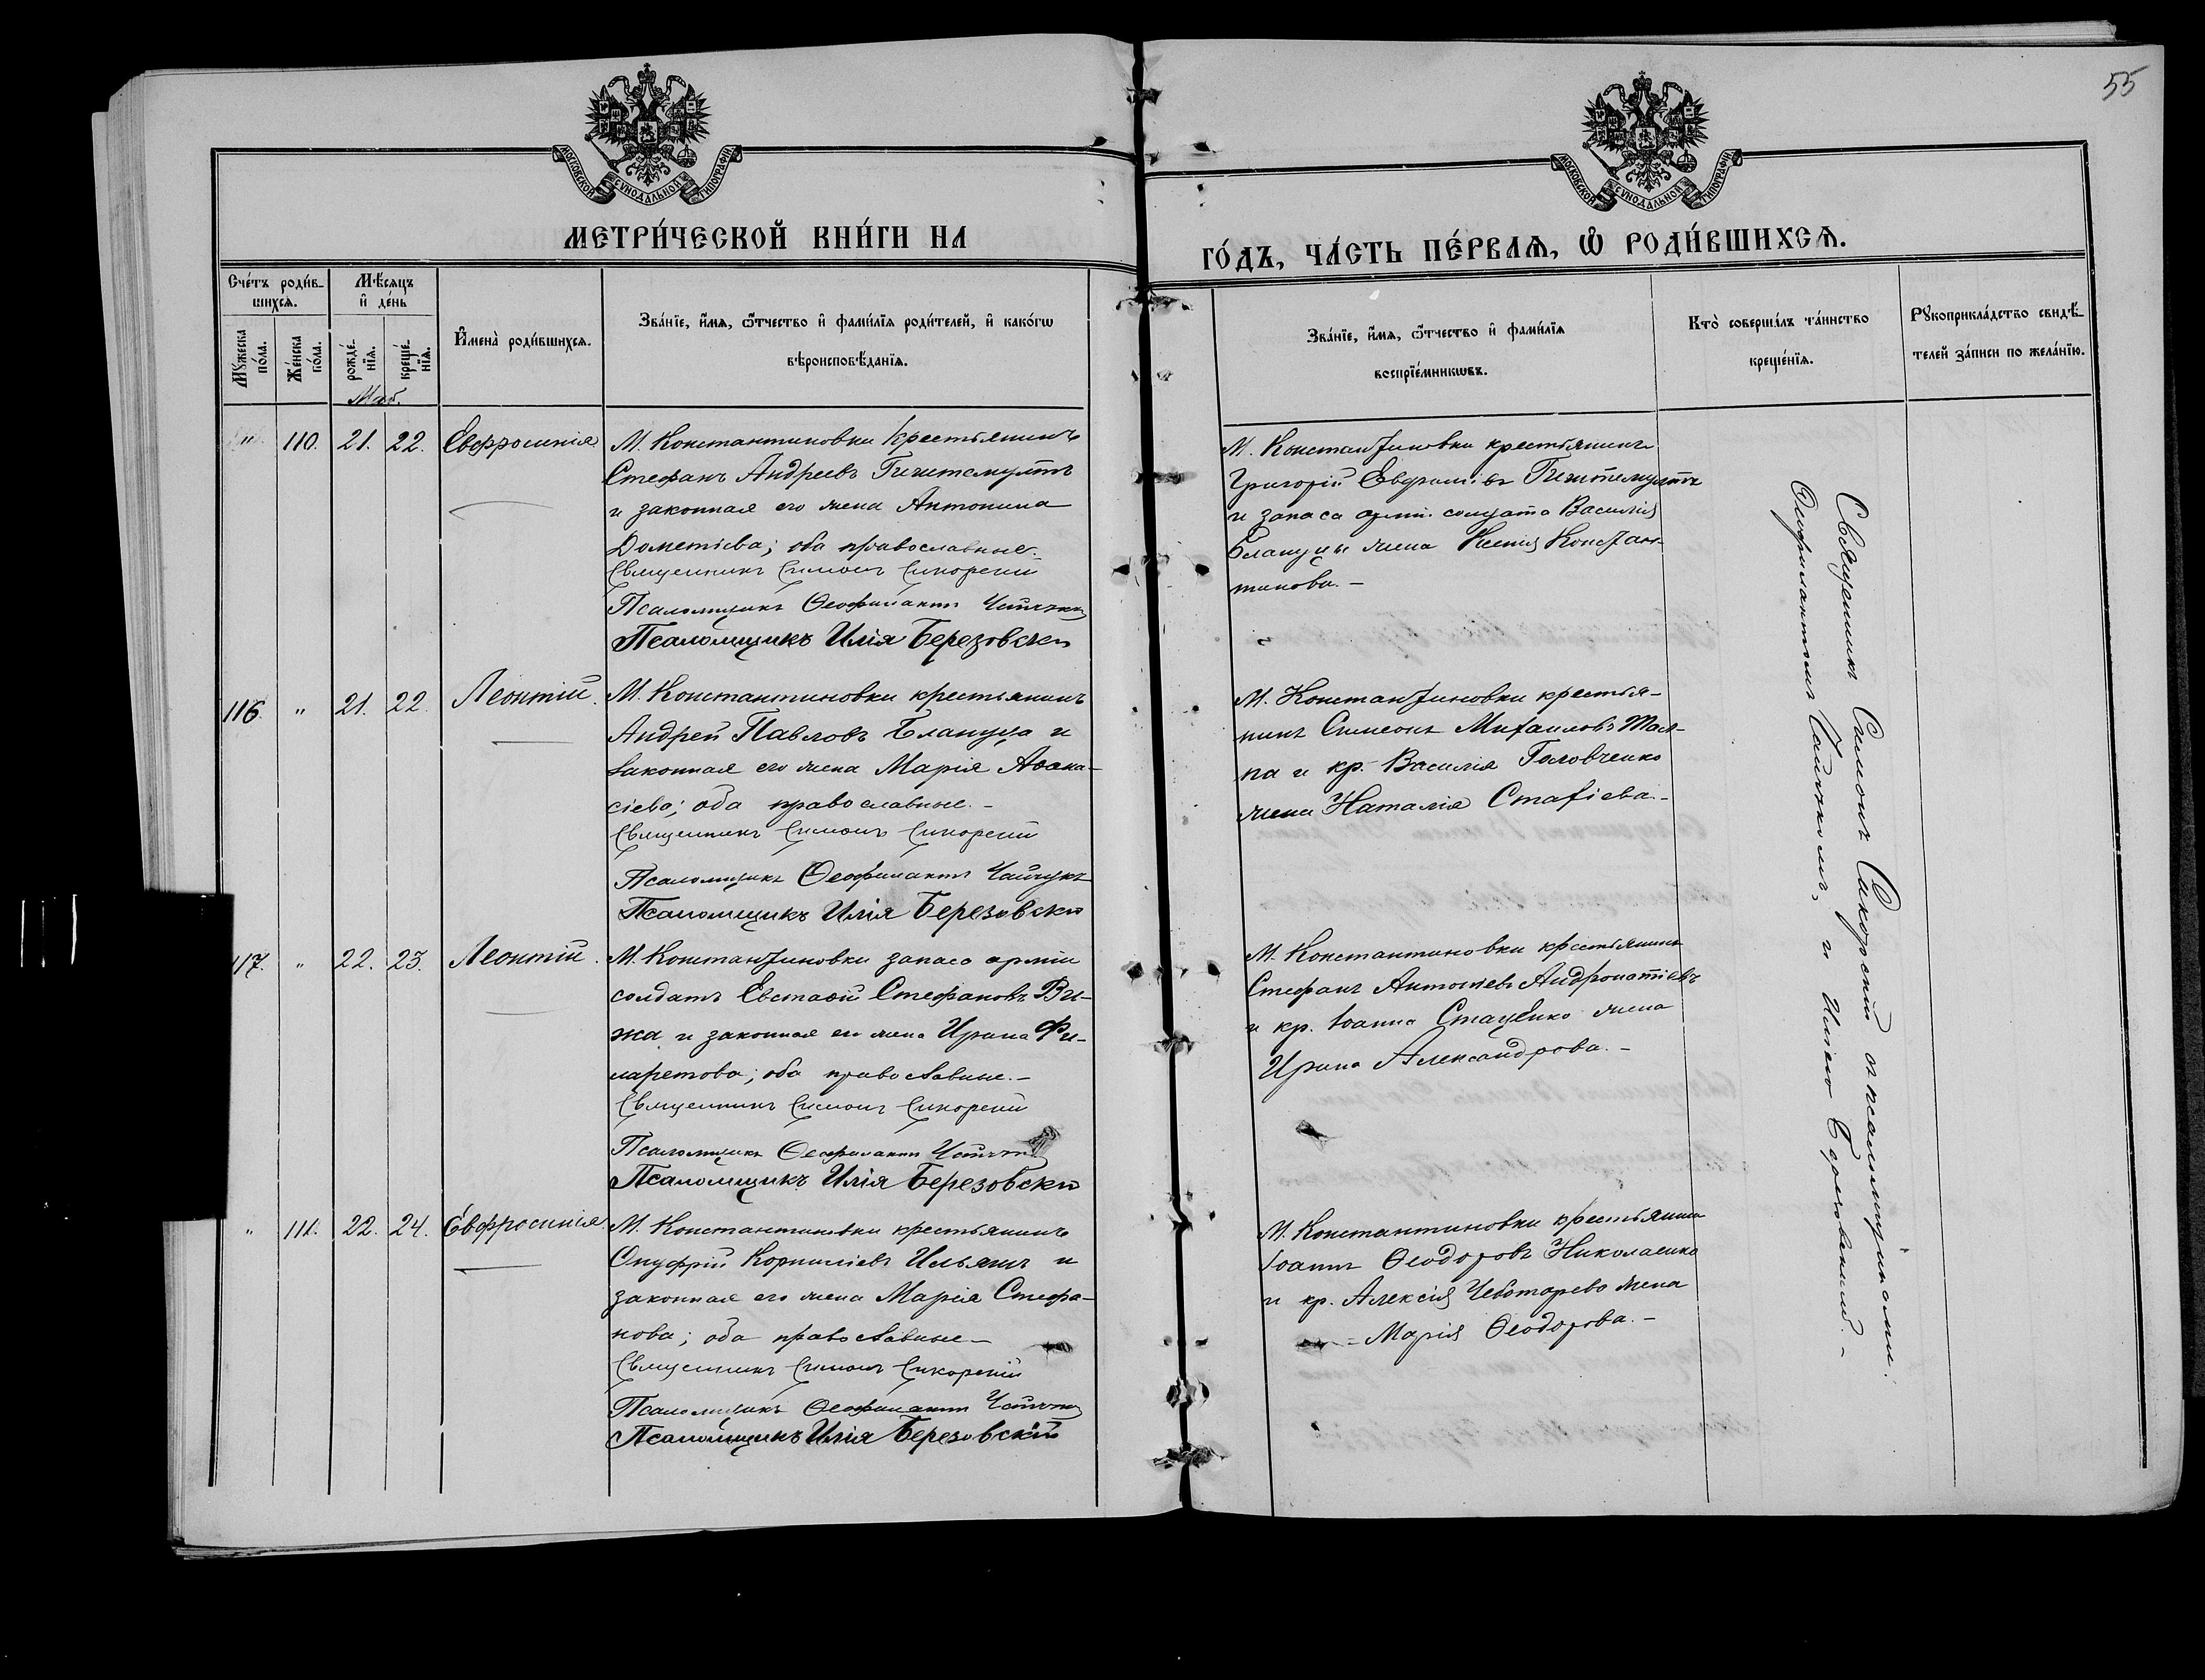 55
МОСКОВСКОЙ СѴНОДАЛЬНОЙ ТИПОГРАФІИ
МОСКОВСКОЙ СѴНОДАЛЬНОЙ ТИПОГРАФІИ
МЕТРИ́ЧЕСКОЙ КНИ́ГИ НА
ГО́ДЪ, ЧА́СТЬ ПЕ́РВАѦ, Ѡ҆ РОДИ́ВШИХСѦ.
Сче́тъ роди́в-
шихсѧ.
Мꙋжеска по́ла.
Же́нска по́ла.
Мѣ́сѧцъ
и҆ де́нь
рожде́-
нїѧ.
креще́-
нїѧ.
И҆мена̀ роди́вшихсѧ.
Зва́нїе, и҆́мѧ, ѻ҆́тчество и҆ фами́лїѧ роди́телей, и҆ како́гѡ
вѣроисповѣ́данїѧ.
Зва́нїе, и҆́мѧ, ѻ҆́тчество и҆ фами́лїѧ
воспрїе́мникѡвъ.
Кто̀ соверша́лъ та́инство
креще́нїѧ.
Рꙋкоприкла́дство свидѣ́-
телей за́писи по жела́нїю.
Май.
" 110. 21. 22. Евфросинія
М. Константиновки крестьянинъ
Стефанъ Андреевъ
и законная его жена Антонина
Дометіева; оба православные.
Священникъ Симонъ Сикорскій
Псаломщикъ Ѳеофилактъ Чайчукъ
Псаломщикъ Илія Березовскій
М. Константиновки крестьянинъ
Григорій
и запаса арміи солдата Василія
Блануцы жена Ксенія Констан-
тинова. –
116. " 21. 22. Леонтій.
М. Константиновки крестьянинъ
Андрей Павловъ Блануца и
законная его жена Марія Аѳана-
сіева; оба православные. –
Священникъ Симонъ Сикорскій
Псаломщикъ Ѳеофилактъ Чайчукъ
Псаломщикъ Илія Березовскій
М. Константиновки крестья-
нинъ Симеонъ Михаиловъ
и кр. Василія Головченко
жена Наталія Стахіева. –
117. " 22. 23. Леонтій.
М. Константиновки запаса арміи
солдатъ Евстаѳій Стефановъ Ви-
жа и законная его жена Ирина Фи-
ларетова; оба православные. –
Священникъ Симонъ Сикорскій
Псаломщикъ Ѳеофилактъ Чайчукъ
Псаломщикъ Илія Березовскій
М. Константиновки крестьянинъ
Стефанъ Антоніевъ
и кр. Іоанна Стаценко жена
Ирина Александрова. –
" 111. 22. 24. Евфросинія.
М. Константиновки крестьянинъ
Онуфрій Корниліевъ Ильяшъ и
законная его жена Марія Стефа-
нова; оба православные –
Священникъ Симонъ Сикорскій
Псаломщикъ Ѳеофилактъ Чайчукъ
Псаломщикъ Илія Березовскій
М. Константиновки крестьянинъ
Іоаннъ Ѳеодоровъ Николаенко
и кр. Алексія Чеботарева жена
Марія Ѳеодорова. –
Священникъ Симонъ Сикорскій съ псаломщиками:
Ѳеофилактомъ Чайчукомъ, и Иліею Березовскимъ. –